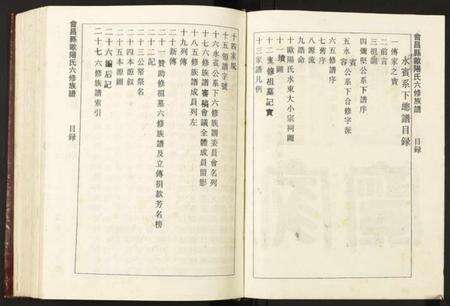 會昌縣歐陽氏六修族譜
目录
水賓系下總譜目录
一傳家之寶
二前言
三祖訓
四號堅公系下譜序
五水賓公系下合修字派
六五修譜序
七舊序
八源流
九誥命
十歐陽氏水東大小宗祠圖
十一墳圖
十二重修祖墓記實
十三家譜凡例
十四家規
十五領譜字號
十六水賓公系下六修族譜委員會名列
十七六修族譜審稿會議全體成員留影
十八五修族譜成員列左
十九列傳
二十新傳
二十一贊助修祖墓六修族譜及立傳捐款芳名榜
二十二雜記
二十三公蒸祭名
二十四本源叙
二十五本源圖
二十六編后記
二十七六修族譜索引
會昌縣歐陽氏六修族譜
目录